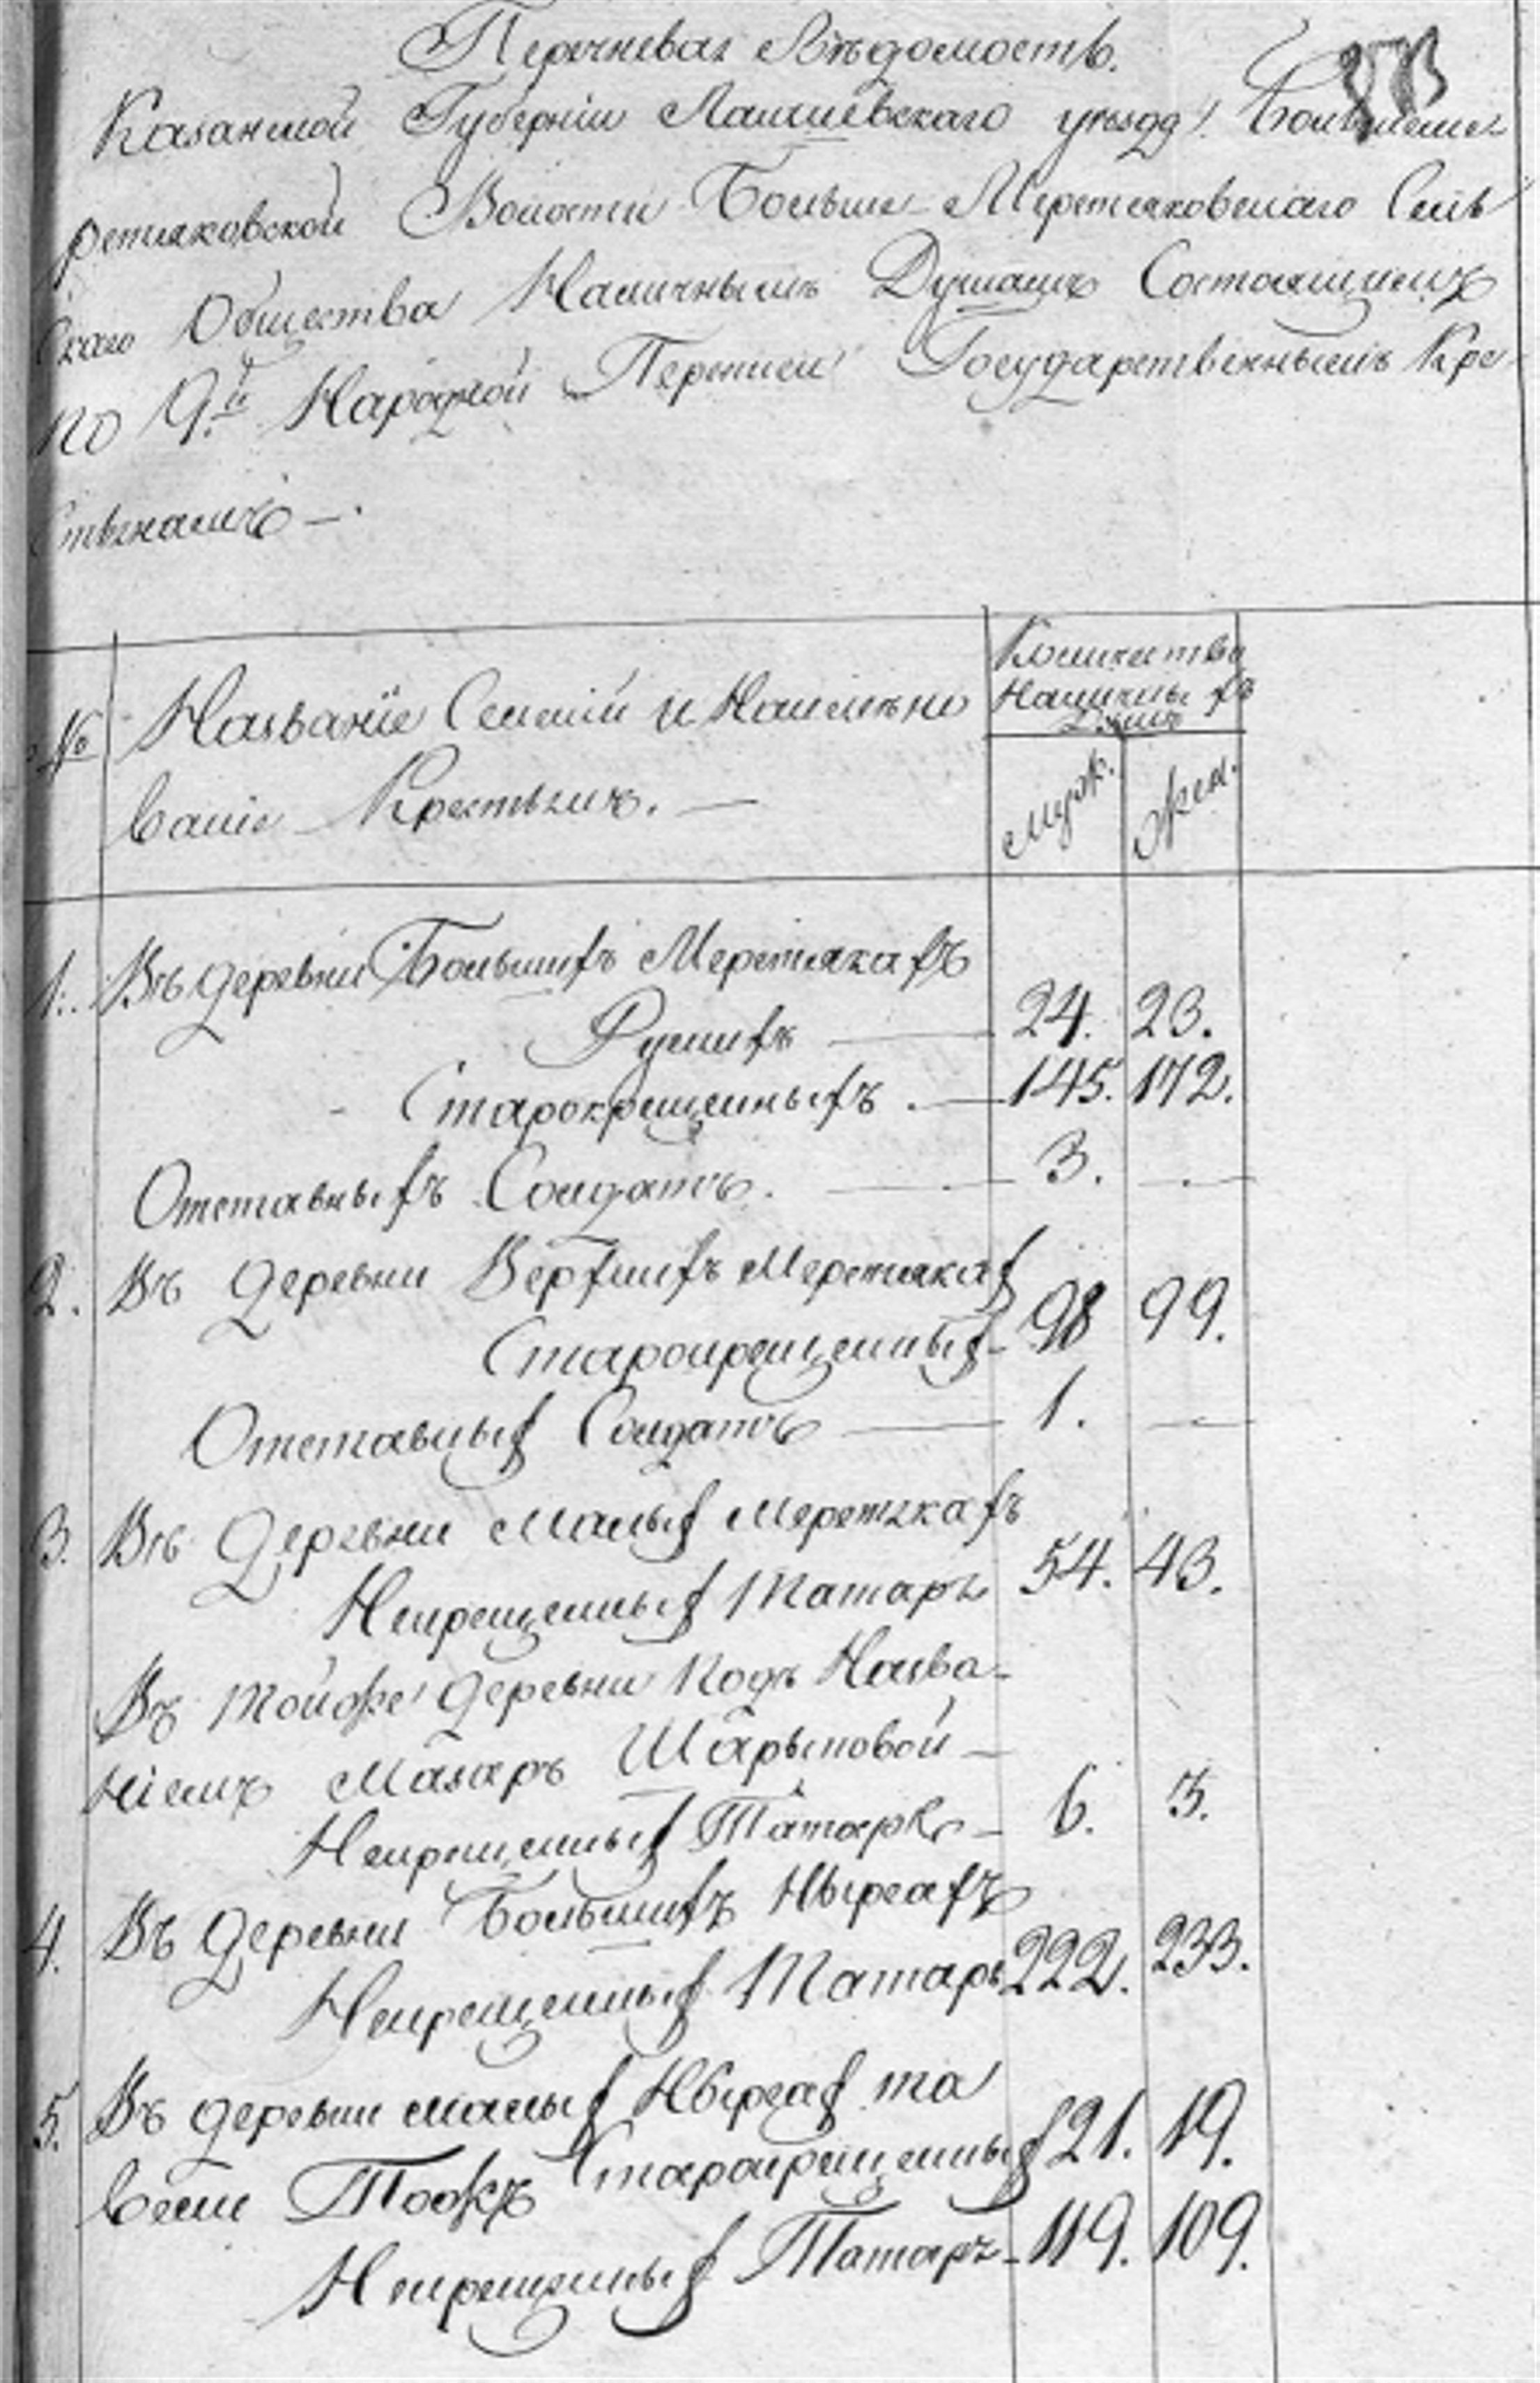 Перечневая Вѣдомость.
Казанской Губерніи Лаишевскаго уѣзда Большеме
ретяковской Волости Больше-Меретяковскаго Сель
скаго Общества Наличнымъ Душамъ Состоящимъ
по 9.й Народной Переписи Государственнымъ Кре
стьянамъ —.
№ Названіе Селеній и Наимено
ваніе Крестьянъ. —
Количество
Наличныхъ
Душъ
Муж. Жен.
1. Въ деревни Большихъ Меретякахъ
Рускихъ — 24. 23.
Старокрещенныхъ. — 145. 172.
Отставныхъ Солдатъ. — 3. —
2. Въ деревни Верхнихъ Меретяках
Старокрещенных - 98 99.
Отставных Солдатъ — 1. —
3. Въ деревни Малых Меретякахъ
Некрещенных Татаръ 54. 43.
Въ тойже деревни подъ Назва-
ніемъ Мазаръ Шарыповой —
Некрещенных Татаръ — 6. 3.
4. Въ деревни Большихъ Нырсахъ
Некрещенных Татаръ 222. 233.
5. Въ деревни малых Нырсах та
веми Тожъ Старокрещенных 21. 19.
Некрещенных Татаръ - 119. 109.